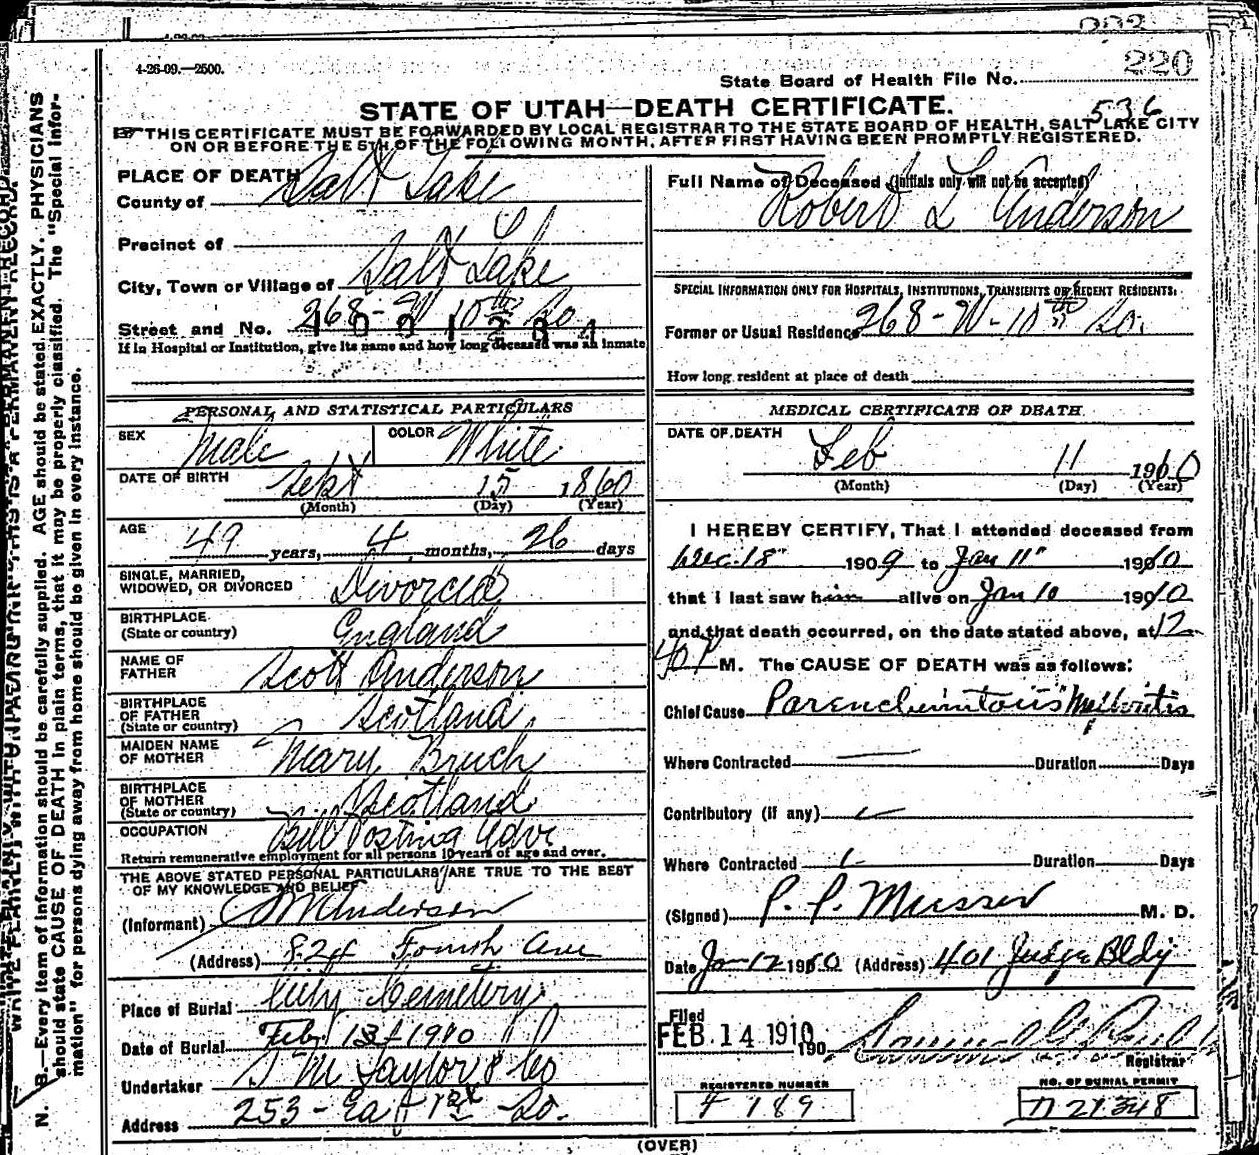 993
220
4-26-09.—2500.
State Board of Health File No.
536
STATE OF UTAH—DEATH CERTIFICATE.
THIS CERTIFICATE MUST BE FORWARDED BY LOCAL REGISTRAR TO THE STATE BOARD OF HEALTH, SALT LAKE CITY
ON OR BEFORE THE 5TH OF THE FOLLOWING MONTH, AFTER FIRST HAVING BEEN PROMPTLY REGISTERED.
PLACE OF DEATH
County of Salt Lake
Precinct of
City, Town or Village of Salt Lake
Street and No. 268 - W 10th So
1001234
If in Hospital or Institution, give its name and how long deceased was an inmate
PERSONAL AND STATISTICAL PARTICULARS
SEX Male COLOR White
DATE OF BIRTH Sept 15 1860
(Month) (Day) (Year)
AGE 49 years, 4 months, 26 days
SINGLE, MARRIED, WIDOWED, OR DIVORCED Divorced
BIRTHPLACE (State or country) England
NAME OF FATHER Scott Anderson
BIRTHPLACE OF FATHER (State or country) Scotland
MAIDEN NAME OF MOTHER Mary Bruch
BIRTHPLACE OF MOTHER (State or country) Scotland
OCCUPATION Bill Posting Advr
Return remunerative employment for all persons 10 years of age and over.
THE ABOVE STATED PERSONAL PARTICULARS ARE TRUE TO THE BEST
OF MY KNOWLEDGE AND BELIEF
(Informant) Anderson
(Address) 824 Fourth Ave
Place of Burial City Cemetery
Date of Burial Feby 13th 1910
Undertaker S M Taylor & Co
Address 253 - East 1st So.
Full Name of Deceased (Initials only will not be accepted)
Robert L Anderson
SPECIAL INFORMATION ONLY FOR HOSPITALS, INSTITUTIONS, TRANSIENTS OR RECENT RESIDENTS:
Former or Usual Residence 268 - W - 10th So.
How long resident at place of death
MEDICAL CERTIFICATE OF DEATH
DATE OF DEATH Feb 11 1910
(Month) (Day) (Year)
I HEREBY CERTIFY, That I attended deceased from
Dec. 18" 1909 to Jan 11" 1910
that I last saw him alive on Jan 10 1910
and that death occurred, on the date stated above, at 12
40 P M. The CAUSE OF DEATH was as follows:
Chief Cause Parenchimtous
Where Contracted Duration Days
Contributory (if any)
Where Contracted Duration Days
(Signed) P. P. Musser M. D.
Date Jan 12 1910 (Address) 401 Judge Bldg
Filed
FEB 14 1910 190
Registrar
REGISTERED NUMBER
F 189
NO. OF BURIAL PERMIT
N 21348
(OVER)
N. B.—Every item of information should be carefully supplied. AGE should be stated EXACTLY. PHYSICIANS
should state CAUSE OF DEATH in plain terms, that it may be properly classified. The "Special Infor-
mation" for persons dying away from home should be given in every instance.